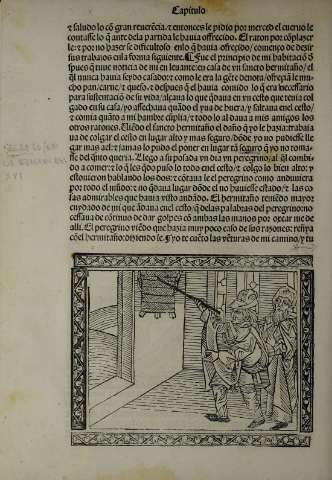 Capitulo
z saludo lo cõ gran reuerẽcia. z entonces le pidio por merced el cueruo le
contasse lo q̃ ante dela partida le hauia offrecido. El raton por cõplazer
le: z por no hazer se dificultoso enlo q̃ hauia ofrecido; començo de dezir
sus trabajos enla forma siguiente. El principio de mi habitaciõ d
spues q̃ tuue noticia de mi en leuante: en casa de vn sancto hermitaño / el
q̃l nunca hauia seydo casador: como le era la gẽte deuota / ofreçiã le mu
cho pan / carne / z queso. z despues q̃ el hauia comido lo q̃ era necessario
para sustentacion de su vida: alguna lo que q̃daua en vn cesto que tenia col
gado en su casa / yo assechaua quãdo el yua de fuera / y saltaua enel cesto /
z comia quãto a mi hambre cũplia: z todo lo al daua a mis amigos los
otros ratones. Uiẽdo el sancto hermitaño el daño q̃ yo le hazia: trabaja
ua de colgar el cesto en lugar alto y mas seguro / dõde yo no pudiesse lle
gar mas alcẽ: z jamas lo pudo el poner en lugar tã seguro q̃ yo no toma
sse del q̃nto queria. Llego a su posada vn dia vn peregrino / al q̃l combi
do a comer: z lo q̃ les sobro puso lo todo enel cesto / z colgo lo bien alto: y
estouieron hablando los dos: z cõtaua le el peregrino como anduuiera
por todo el mũdo: z no q̃daua lugar dõde el no houiesse estado / z las co
sas admirables que hauia visto andãdo. El hermitaño teniẽdo mayor
cuydado de mi que estaua enel cesto / q̃ delas palabras del peregrino no
cessaua de cõtinuo de dar golpes cõ ambas las manos por oxear me de
alli. El peregrino viẽdo que hazia muy poco caso de sus razones: reñya
cõ el hermitaño: diziendo le. Yo te cuẽto las vẽturas de mi camino / y tu